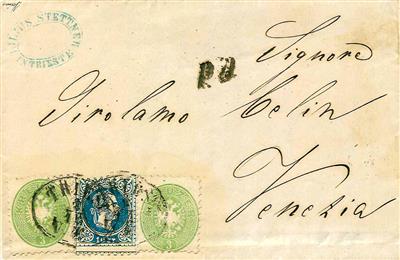 JULIUS STETTNER
IN TRIESTE
Signore
P.D.
Girolamo Celin
Venezia